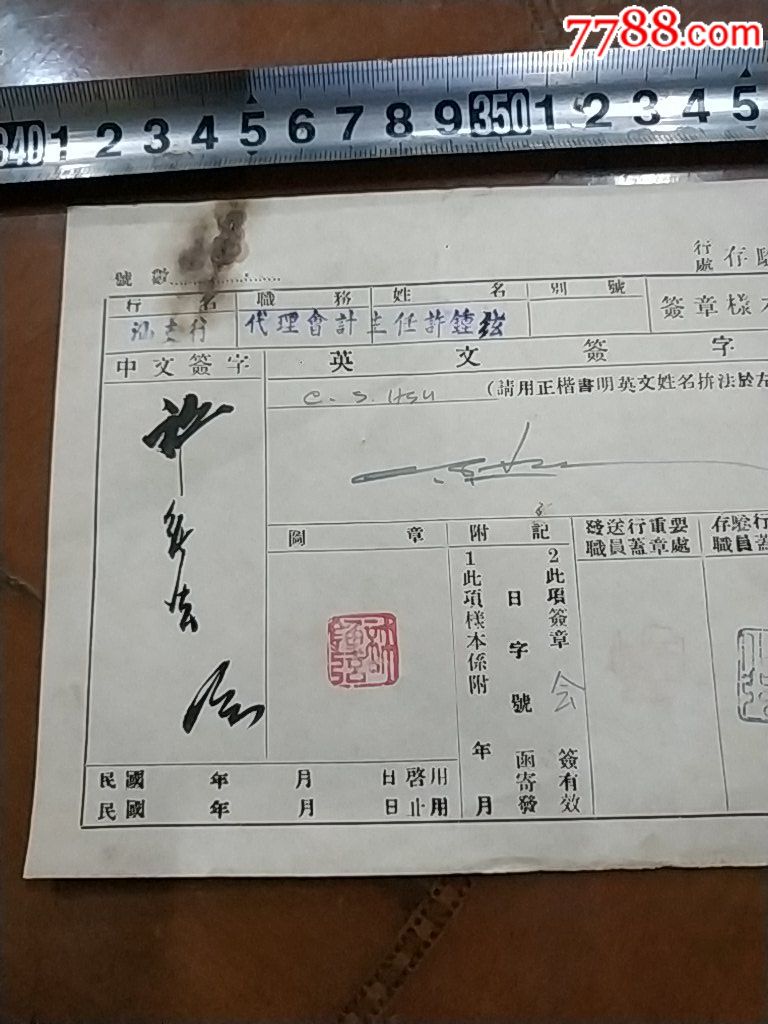 7788.com
340 1 2 3 4 5 6 7 8 9 350 1 2 3 4 5
行處存驗
號數
行名 職務 姓名 別號
簽章樣本
汕支行 代理會計主任 許鍾弦
中文簽字
英文簽字
C. S. HSU (請用正楷書明英文姓名拚法於左
圖章
附記
1 此項樣本係附 年 月
日 字 號 函寄發
2 此項簽章 会 簽有效
發送行重要職員蓋章處
存驗行
職員蓋
許鍾弦
民國 年 月 日啓用
民國 年 月 日止用